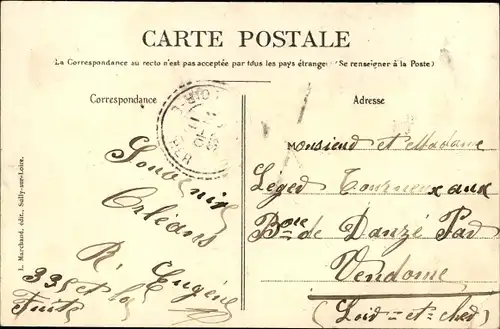 CARTE POSTALE
La Correspondance au recto n'est pas acceptée par tous les pays étrangers (Se renseigner à la Poste)
Correspondance
Adresse
Souvenir
Orléans
R. Eugène
Monsieur et Madame
Léger Tourneux aux
de Danzé Par
Vendome
(Loir-et-cher)
L. Marchand, édit., Sully-sur-Loire.